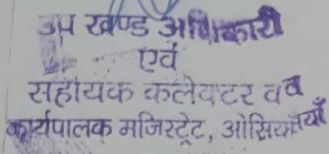 उप खण्ड अधिकारी
एवं
सहायक कलेक्टर एवं
कार्यपालक मजिस्ट्रेट, ओसियाँ